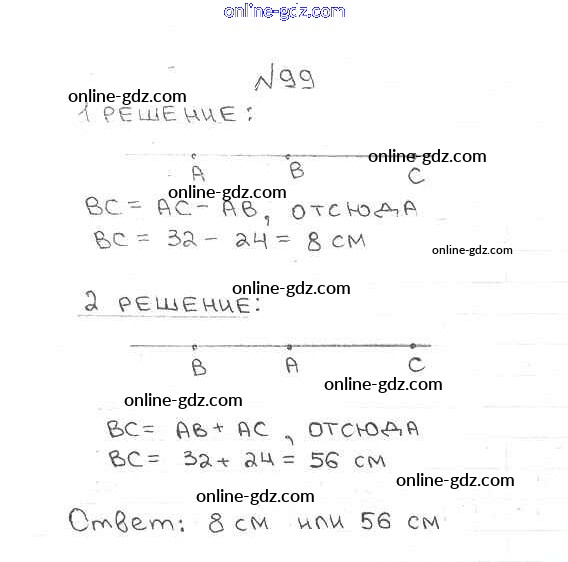 online-gdz.com
N99
online-gdz.com
1 РЕШЕНИЕ:
online-gdz.com
A B C
online-gdz.com
BC = AC - AB, ОТСЮДА
BC = 32 - 24 = 8 см
online-gdz.com
online-gdz.com
2 РЕШЕНИЕ:
B A C
online-gdz.com
online-gdz.com
BC = AB + AC, ОТСЮДА
BC = 32 + 24 = 56 см
online-gdz.com
online-gdz.com
Ответ: 8 см или 56 см
online-gdz.com